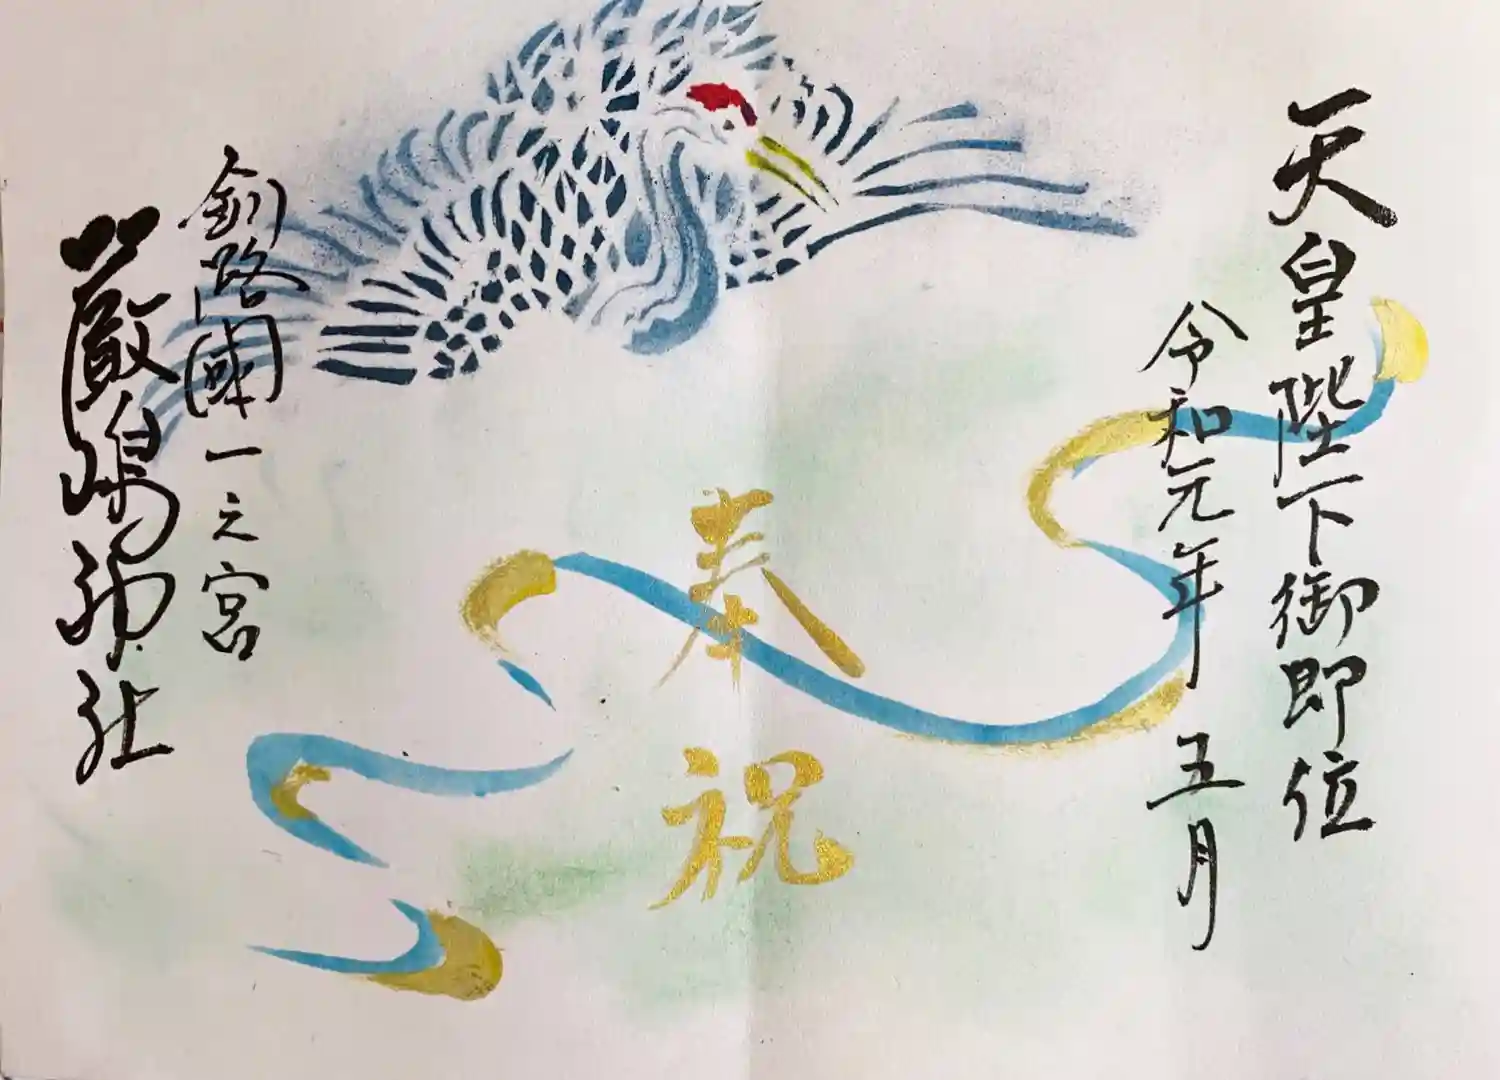 天皇陛下御即位
令和元年 五月
奉祝
釧路國一之宮
厳島神社